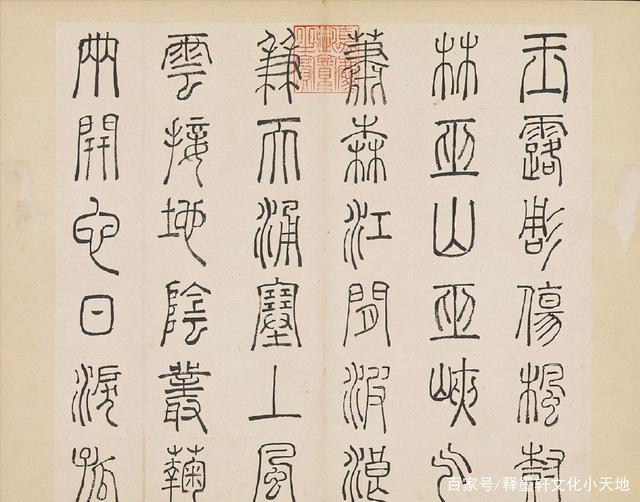 玉露彫傷楓樹
林巫山巫峽气
蕭森江閒波浪
兼天涌塞上風
雲接地陰叢蘜
兩開它日淚孤
百家号/释墨轩文化小天地